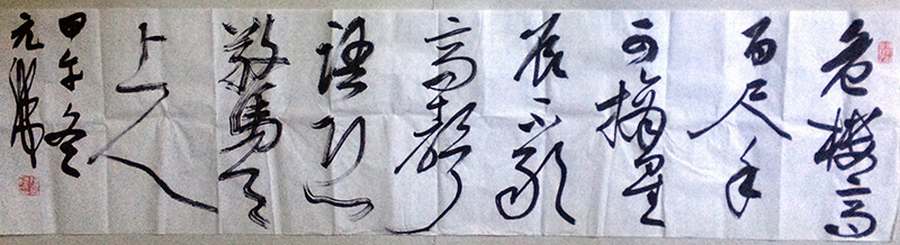 危樓高
百尺手
可摘星
辰不敢
高聲
語恐
驚天
上人
甲午冬
元